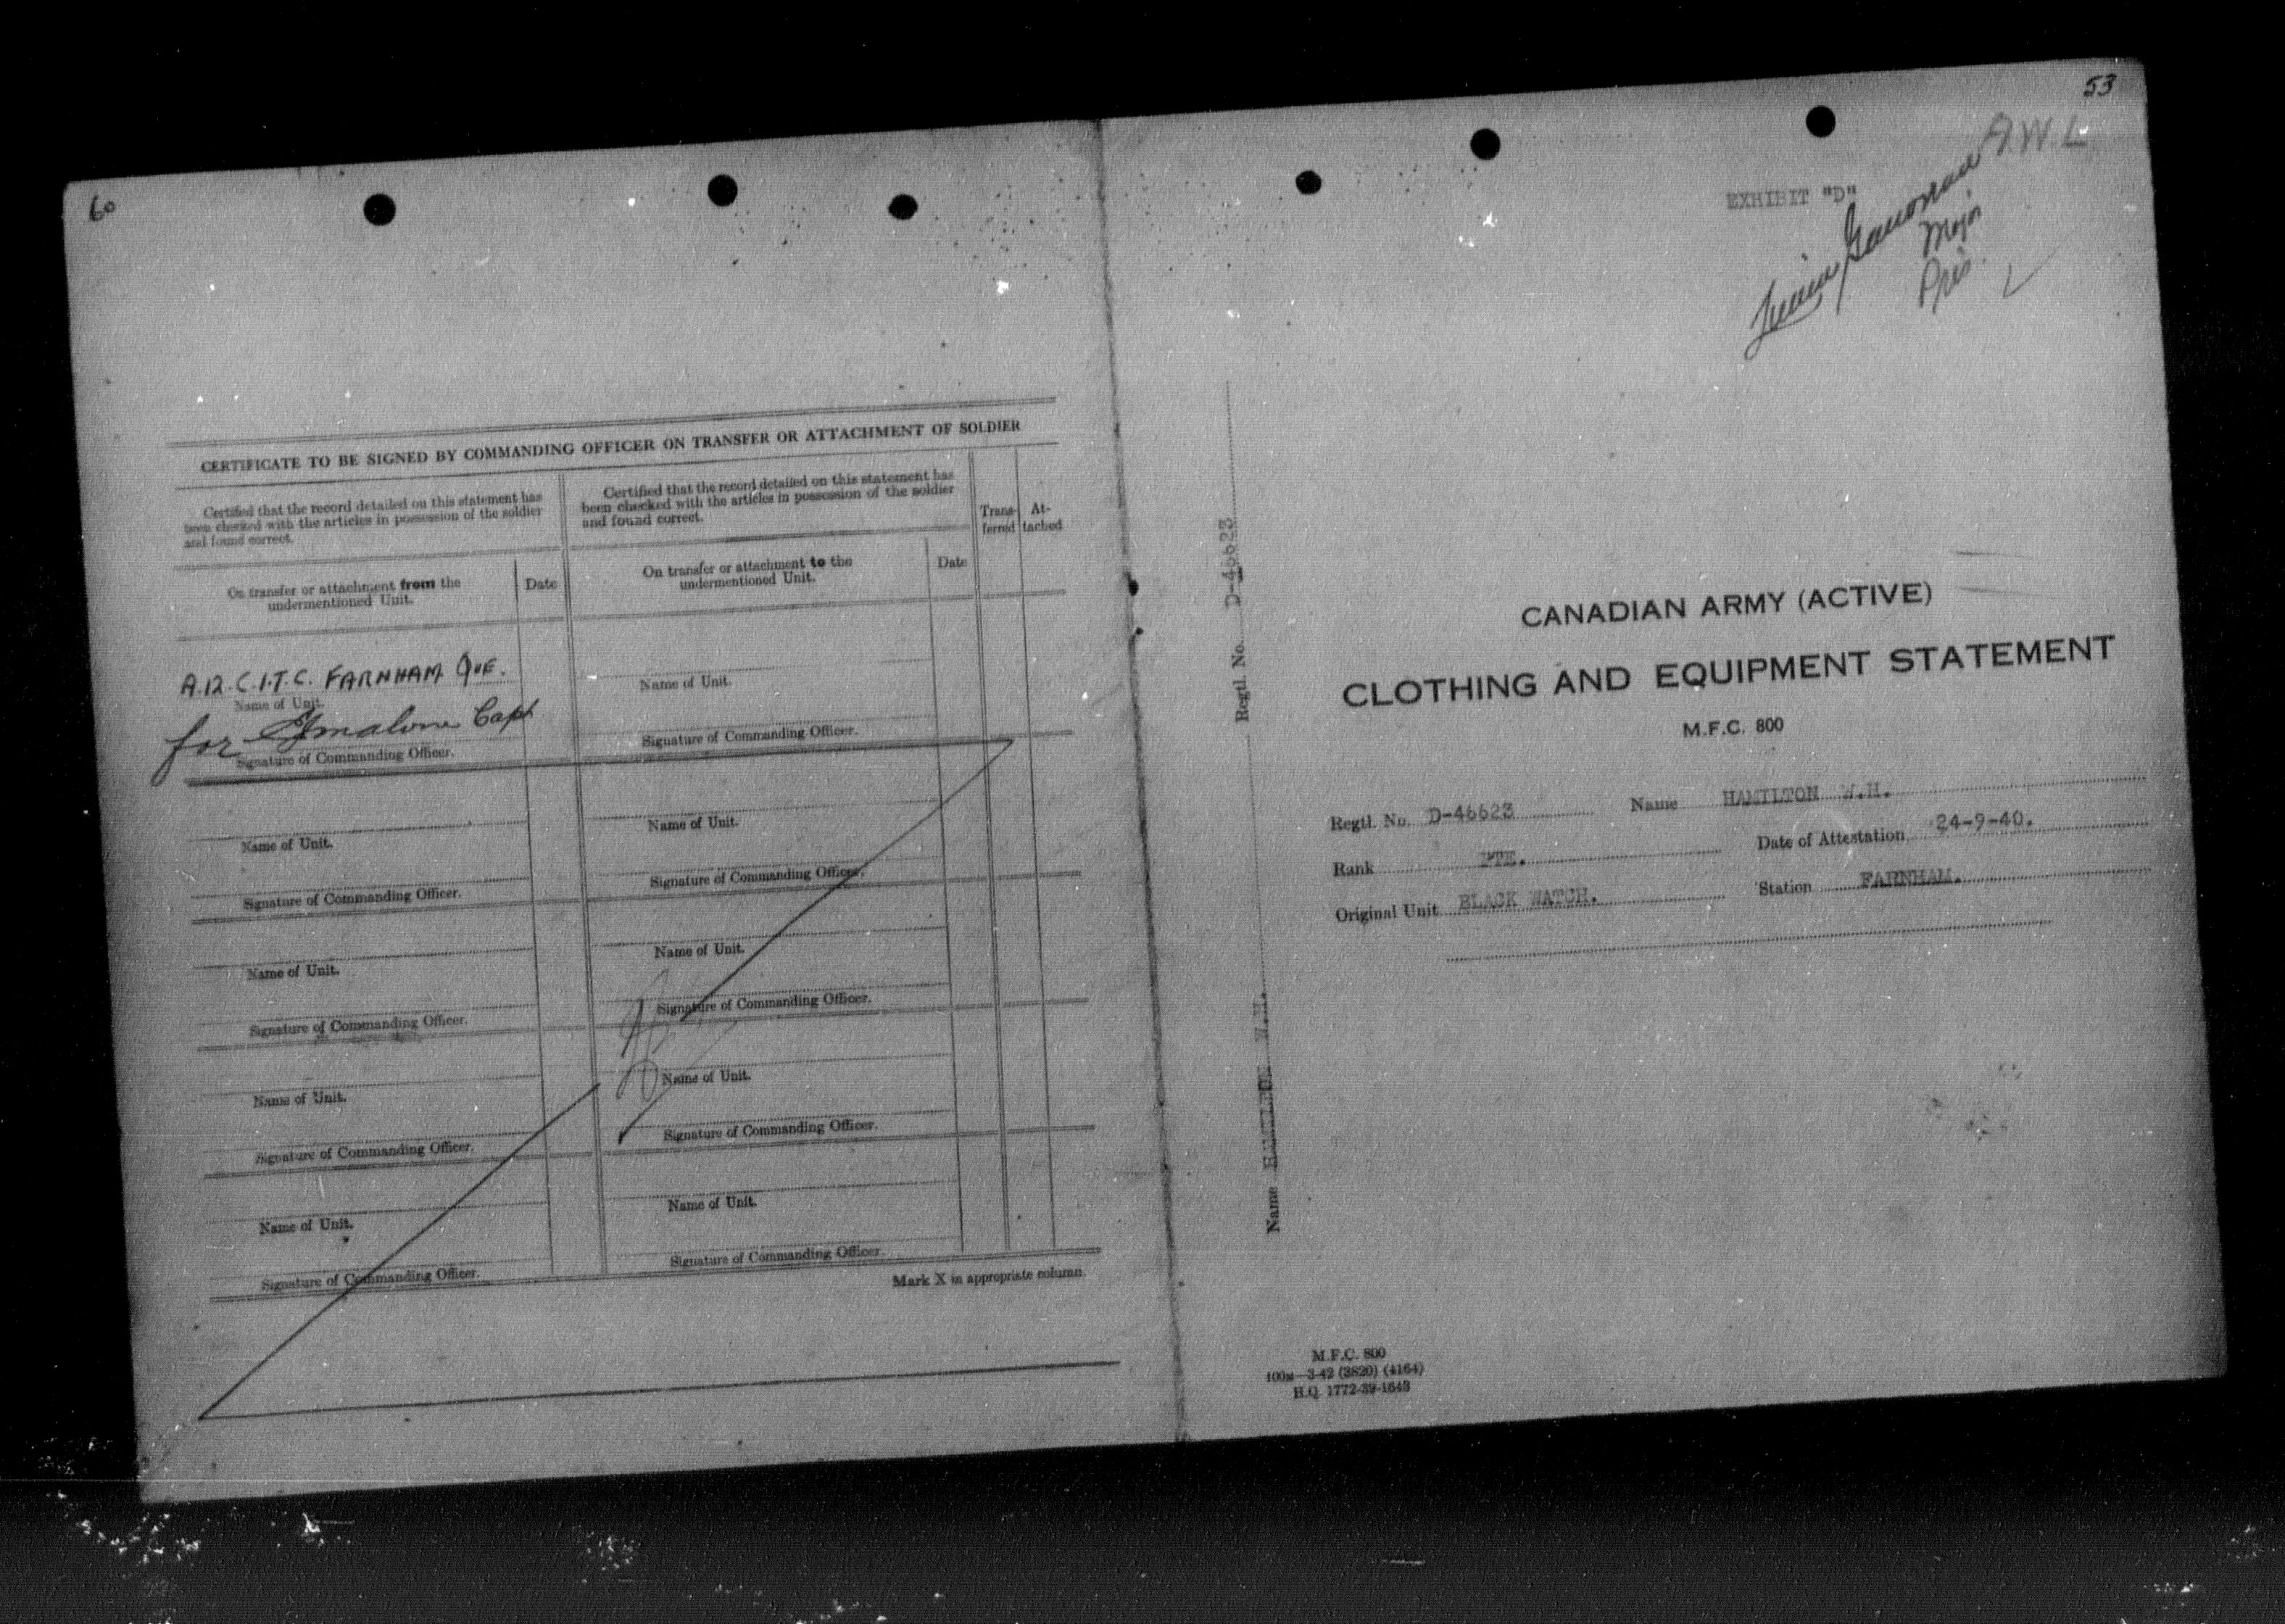 60
CERTIFICATE TO BE SIGNED BY COMMANDING OFFICER ON TRANSFER OR ATTACHMENT OF SOLDIER
Certified that the record detailed on this statement has
been checked with the articles in possession of the soldier
and found correct.
Certified that the record detailed on this statement has
been checked with the articles in possession of the soldier
and found correct.
Trans-
ferred
At-
tached
On transfer or attachment from the
undermentioned Unit.
Date
On transfer or attachment to the
undermentioned Unit.
Date
A.12.C.I.T.C. FARNHAM QUE.
Name of Unit.
for Malone Capt
Signature of Commanding Officer.
Name of Unit.
Signature of Commanding Officer.
Name of Unit.
Signature of Commanding Officer.
Name of Unit.
Signature of Commanding Officer.
Name of Unit.
Signature of Commanding Officer.
Name of Unit.
Signature of Commanding Officer.
Name of Unit.
Signature of Commanding Officer.
Name of Unit.
Signature of Commanding Officer.
Name of Unit.
Signature of Commanding Officer.
Name of Unit.
Signature of Commanding Officer.
Mark X in appropriate column.
53
A.W.L
EXHIBIT "D"
Major
Pres.
Regtl. No. D-46623
Name HAMILTON W.H.
CANADIAN ARMY (ACTIVE)
CLOTHING AND EQUIPMENT STATEMENT
M.F.C. 800
Regtl. No. D-46623 Name HAMILTON W.H.
Rank PTE. Date of Attestation 24-9-40.
Original Unit BLACK WATCH. Station FARNHAM.
M.F.C. 800
100M—3-42 (3820) (4164)
H.Q. 1772-39-1643